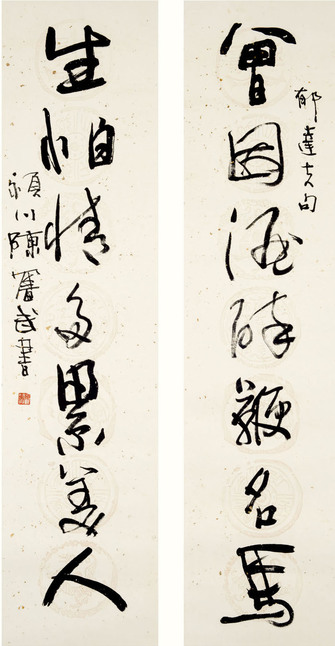 郁達夫句
曾因酒醉鞭名馬
生怕情多累美人
潁川陳舊武書